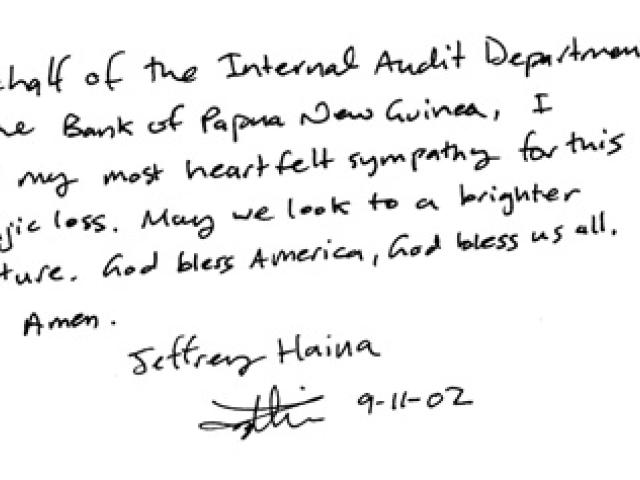 half of the Internal Audit Departmen
Bank of Papua New Guinea, I
my most heartfelt sympathy for this
gic loss. May we look to a brighter
ture. God bless America, God bless us all.
Amen.
Jeffrey Haina
9-11-02